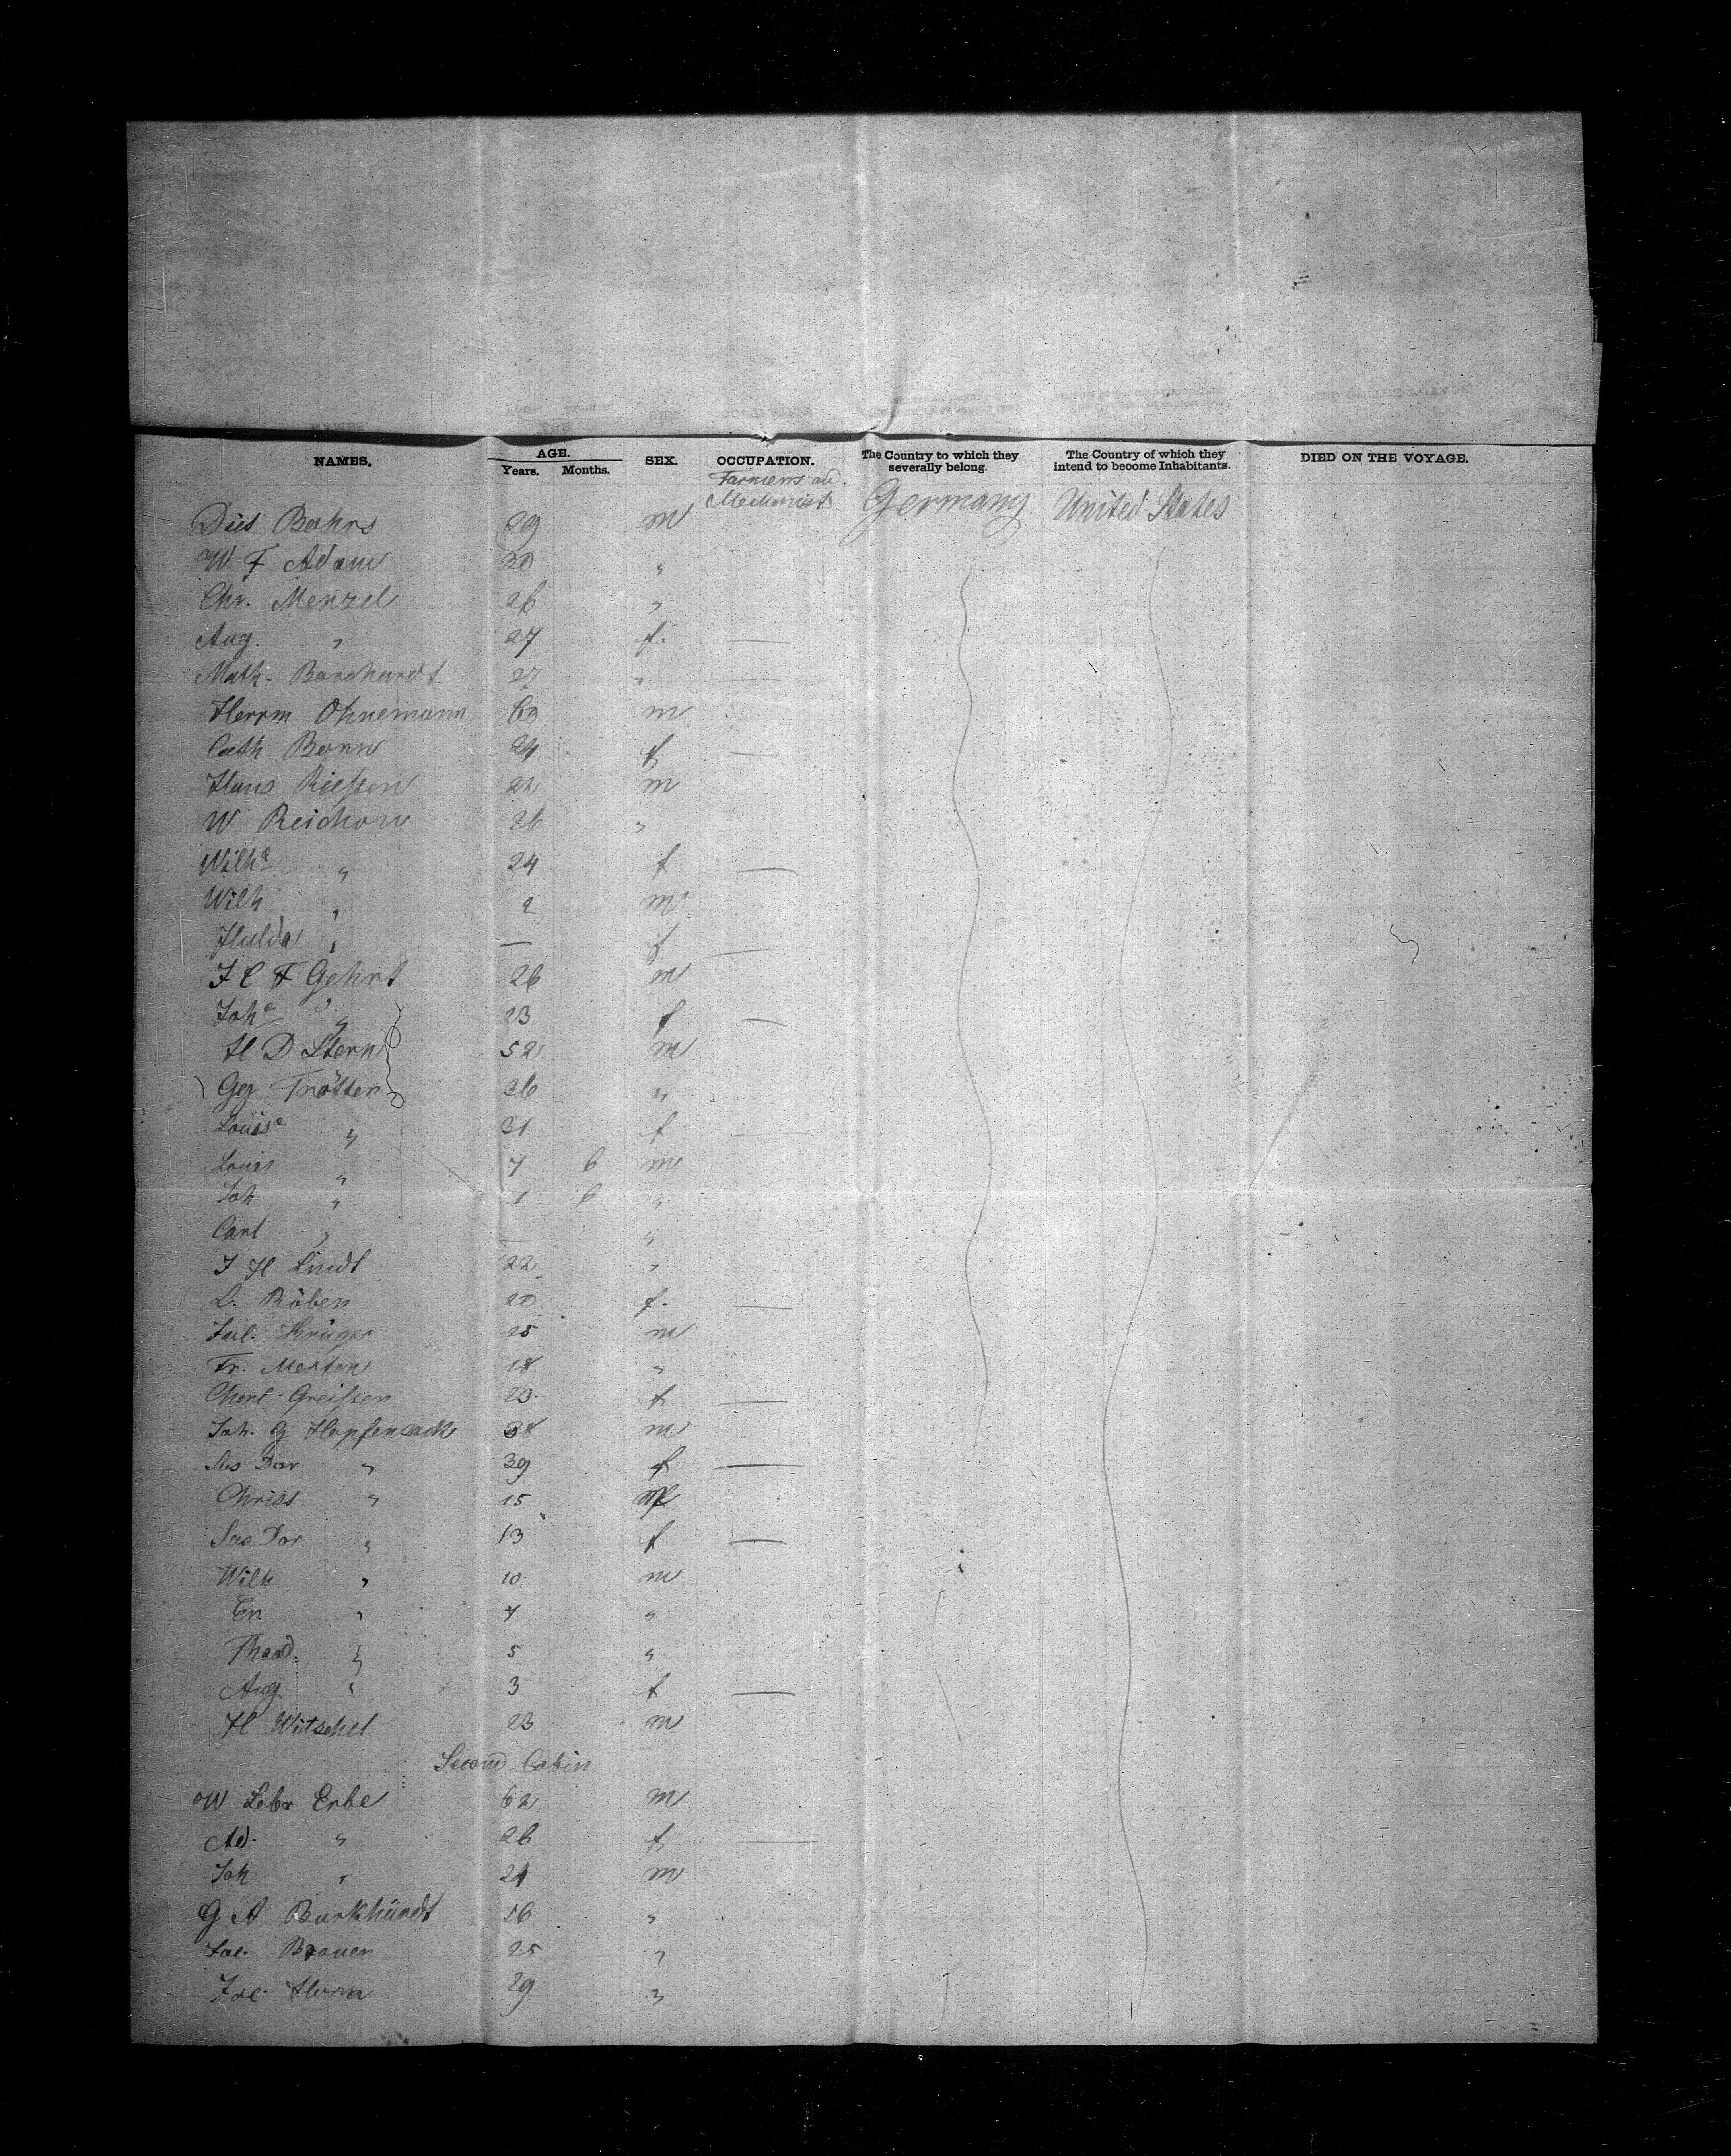 NAMES. AGE. Years. Months. SEX. OCCUPATION. The Country to which they severally belong. The Country of which they intend to become Inhabitants. DIED ON THE VOYAGE.
Farmers and Mechanists Germany United States
Bahrs m
W F Adam 30 "
Chr. Menzel 26 "
Aug. " 27 f. —
Math. Borchardt 27 " —
Herrm Ohnemann 60 m
Cath Bonn 24 f —
Hans Riessen 22 m
W Reichow 26 "
Wilhe " 24 f —
Wilh " 2 m
Hulda " — f —
J C F Gehrt 26 m
Johe " 23 f —
H D Stern 52 m
Gg Trötter 36 "
Louise " 31 f —
Louis " 7 6 m
Joh " 1 6 "
Carl " — "
J H Lindt 22 "
D. Röben 20 f. —
Jul. Krüger 25 m
Fr. Merten 18 "
Charl. Greissen 23 f —
Joh. G Hopfensack 38 m
Sus Dor " 39 f —
Christ " 15 m
Sus Dor " 13 f —
Wilh " 10 m
" 7 "
" 5 "
Aug " 3 f —
H Witschel 23 m
Second Cabin
W Lebr Erbe 62 m
Ad. " 26 f —
Joh " 24 m
G A Burkhürdt 16 "
Brauer 25 "
Horn 29 "